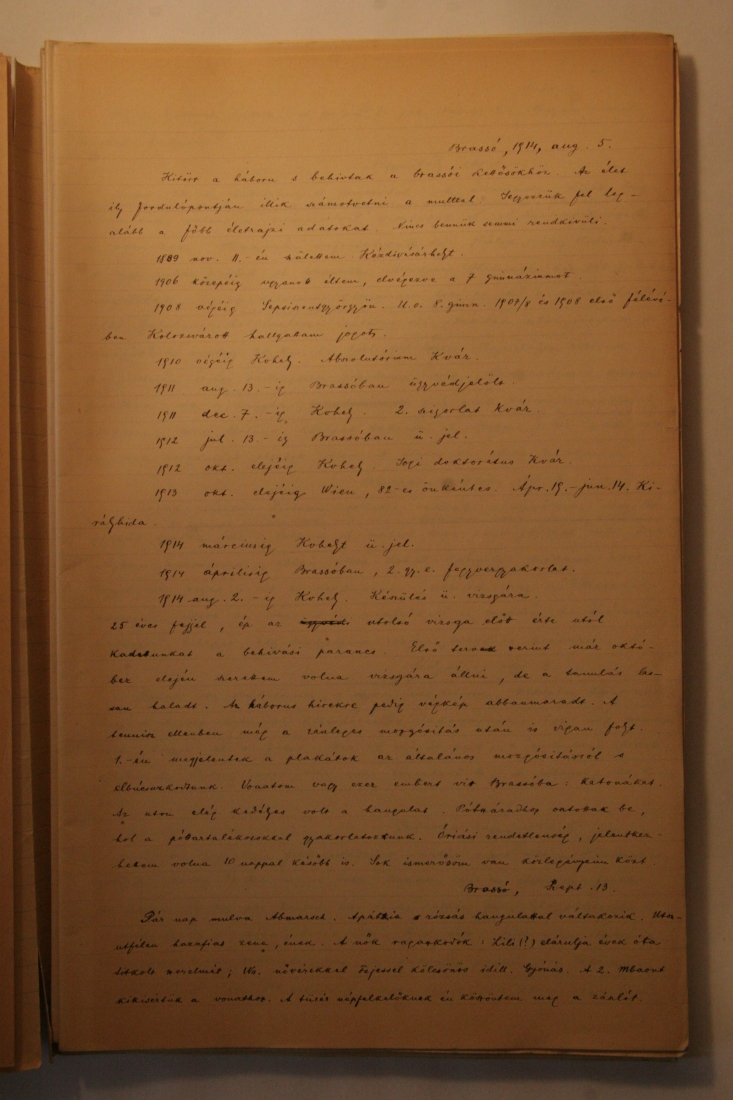 Brassó, 1914, aug. 5.
Kitört a háboru s behivtak a brassói kettősökhöz. Az élet
ily fordulópontján illik számotvetni a multtal. Jegyezzük fel leg-
alább a főbb életrajzi adatokat. Nincs bennük semmi rendkivüli.
1889 nov. 11.-én születtem Kézdivásárhelyt.
1906 közepéig ugyanott éltem, elvégezve a 7 gimnáziumot.
1908 végéig Sepsiszentgyörgyön. U.o. 8. gimn. 1907/8 és 1908 első félévé-
ben Kolozsvárott hallgattam jogot.
1910 végéig Kvhely. Absolutórium Kvár.
1911 aug. 13.-ig Brassóban ügyvédjelölt.
1911 dec. 7.-ig Kvhely. 2. szigorlat Kvár.
1912 jul. 13.-ig Brassóban ü. jel.
1912 okt. elejéig Kvhely. Jogi doktorátus Kvár.
1913 okt. elejéig Wien, 82-es önkéntes. Ápr. 15.-jún. 14. Ki-
rályhida.
1914 márciusig Kvhelyt ü. jel.
1914 áprilisig Brassóban, 2. gy. e. fegyvergyakorlat.
1914 aug. 2.-ig Kvhely. Készülés ü. vizsgára.
25 éves fejjel, ép az utolsó vizsga előtt érte utól
a behivási parancs. Első tervem szerint már októ-
ber elején szerettem volna vizsgára állni, de a tanulás las-
san haladt. Az háborus hirekre pedig végkép abbanmaradt. A
tennisz ellenben még a részleges mozgósitás után is vigan folyt.
1.-én megjelentek a plakátok az általános mozgósitásról s
elbúcsuzkodtunk. Vonatom vagy ezer embert vitt Brassóba: katonákat.
Az uton elég kedélyes volt a hangulat. Pótszázadhoz osztottak be,
hol a póttartalékosokkal gyakorlatoztunk. Óriási rendetlenség, jelentkez-
hettem volna 10 nappal később is. Sok ismerősöm van közlegényeim közt.
Brassó, Szept. 13.
Pár nap mulva Abmarsch. Apáthia s rózsás hangulattal váltakozik. Uton-
utfélen hazafias zene, ének. A nők ragaszkodók: Lili (!) elárulja évek óta
titkolt szerelmét; nővérekkel Fejessel kölcsönös idill. Gyónás. A 2. Mbaont
kikisértük a vonathoz. A tüsér népfelkelőknek én kötöttem meg a zászlót.